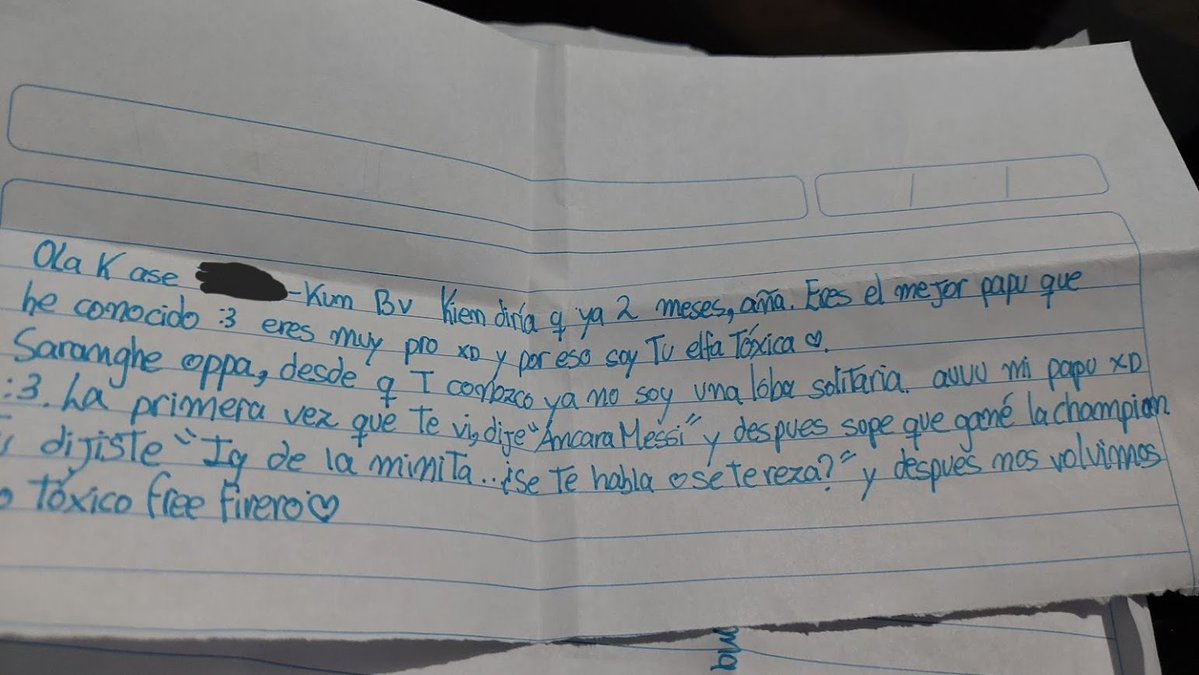 Ola K ase -Kum Bv Kiem diría q ya 2 meses, aña. Eres el mejor papu que
he conocido :3 eres muy pro xD y por eso soy Tu elfa Tóxica ♡.
Saranghe oppa, desde q T conozco ya no soy una loba solitaria. auuu mi papu xD
:3. La primera vez que te vi, dije "Ancara Messi" y despues sope que gané la champion
dijiste "Ig de la mimita.. ¿Se te habla o se te reza?" y después nos volvimos
tóxico free firero♡